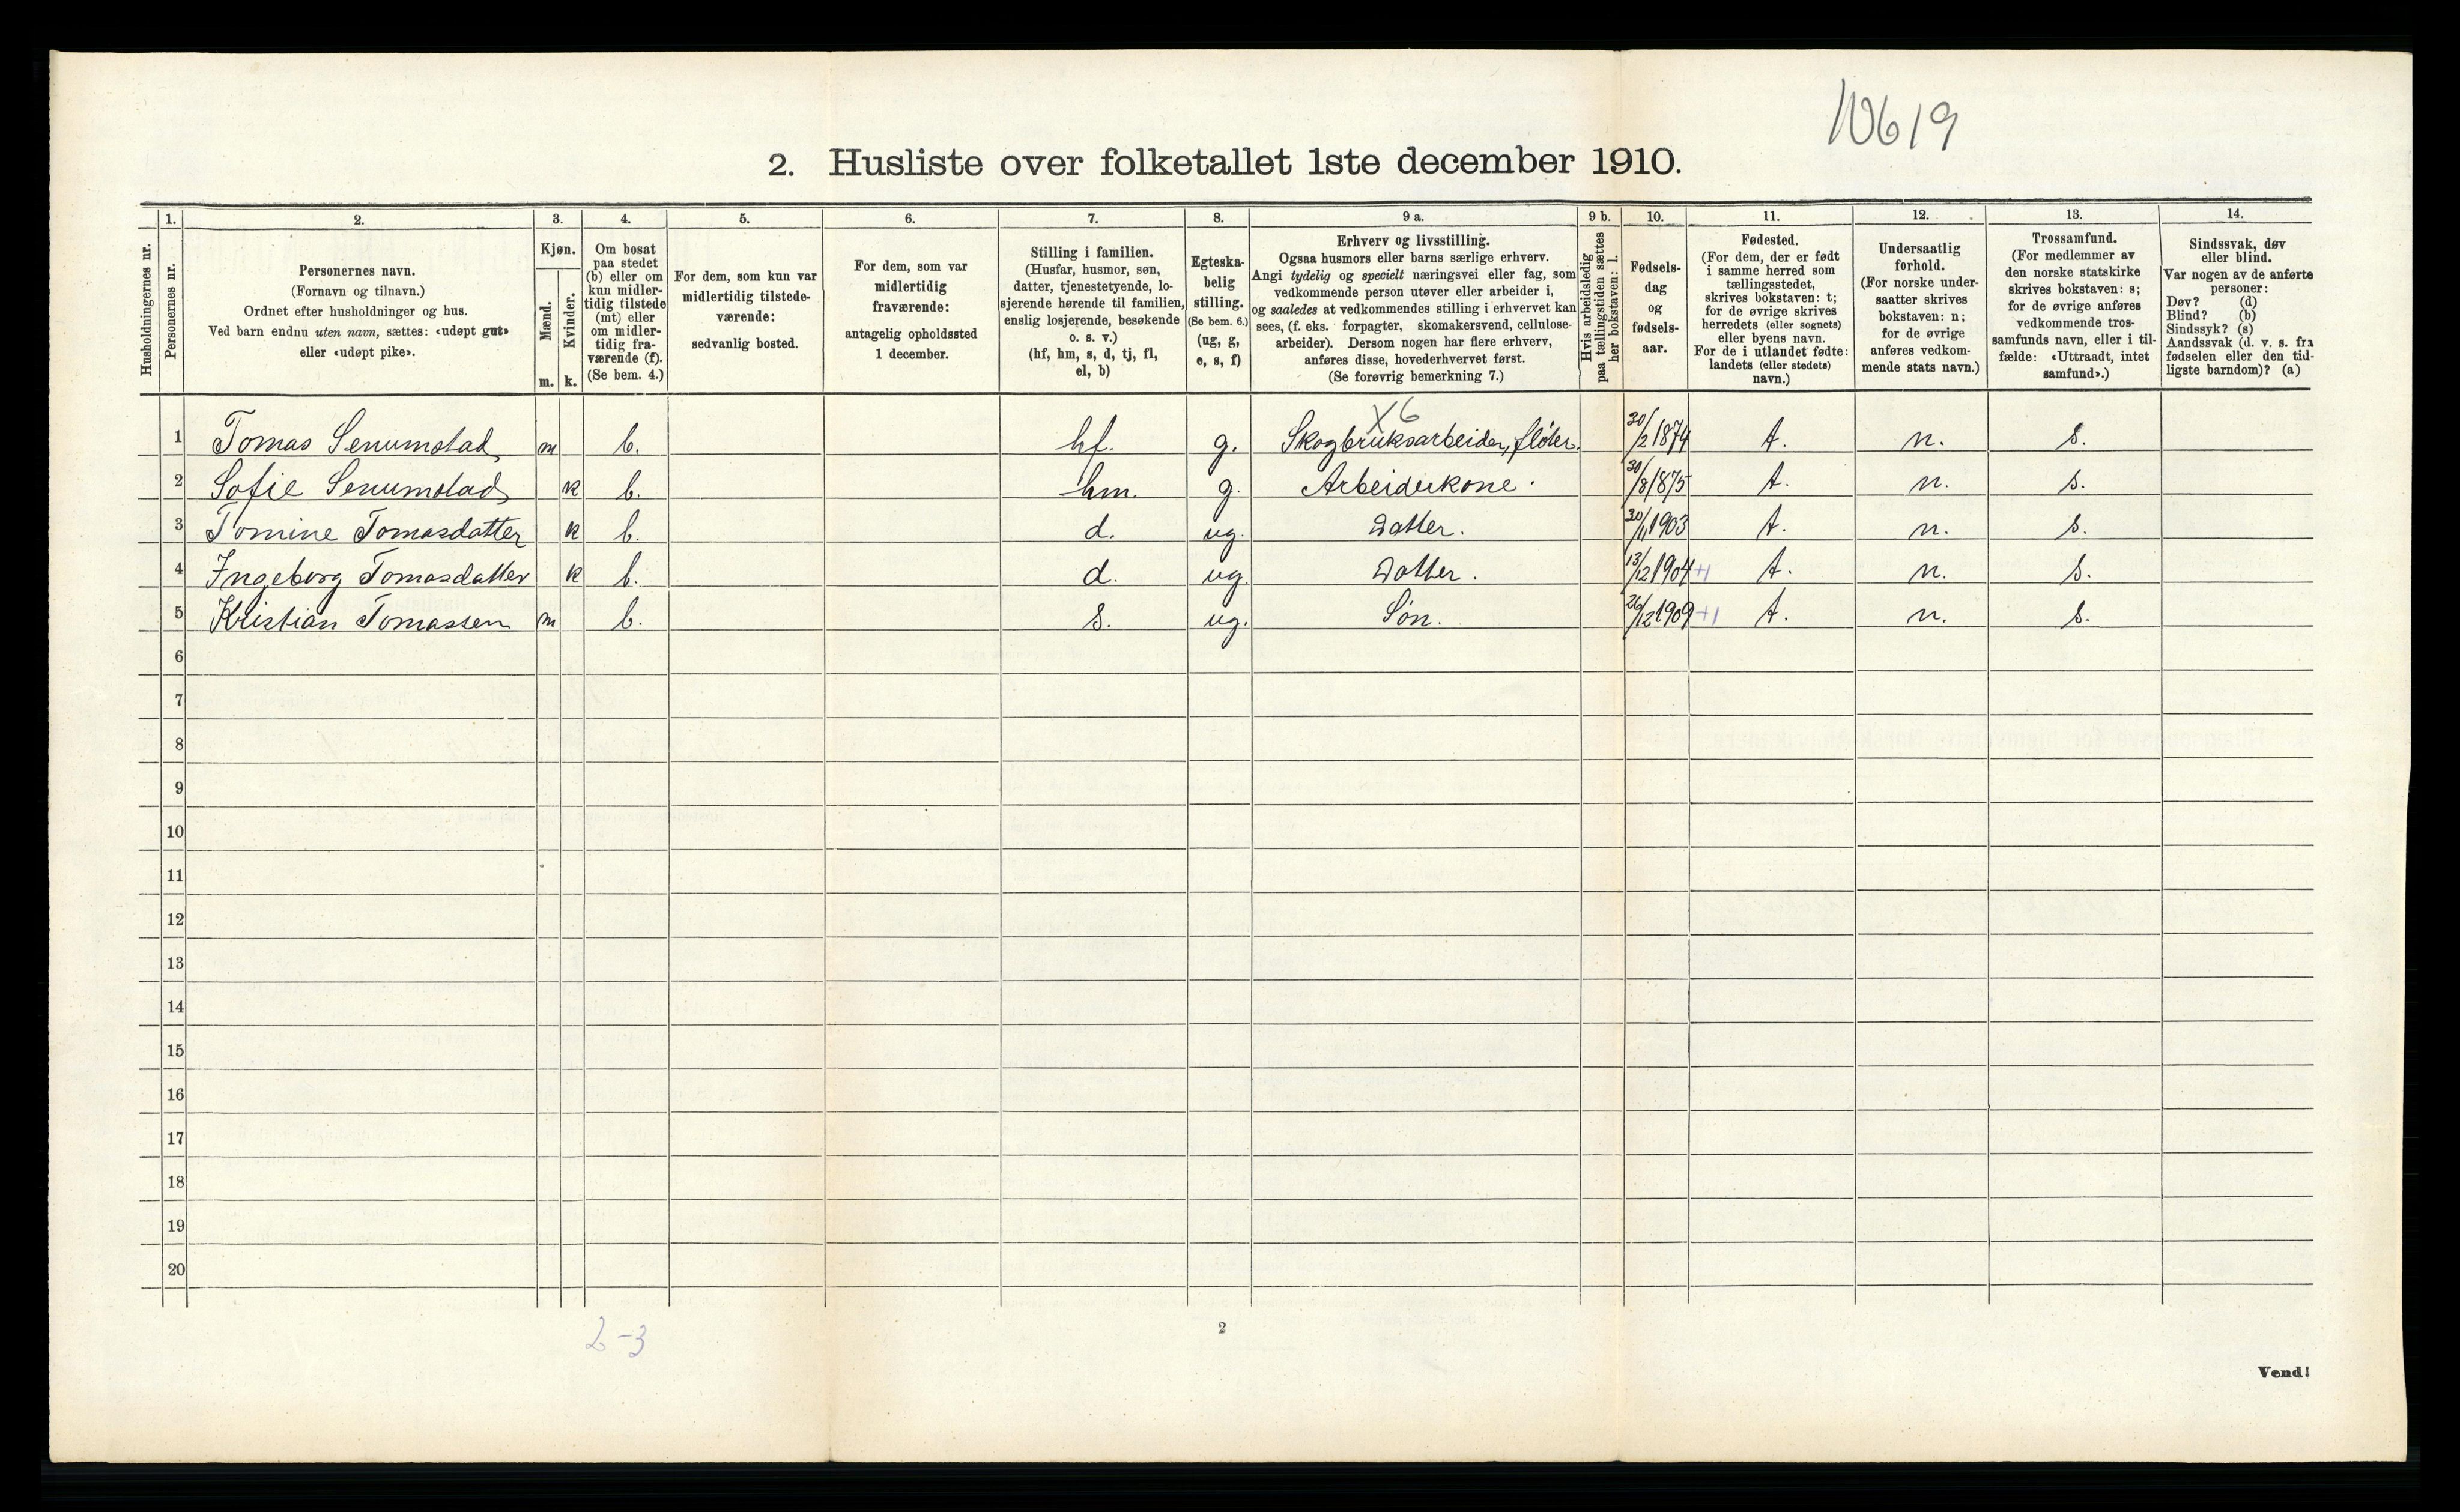 10619
2. Husliste over folketallet 1ste december 1910.
1. 2. 3. 4. 5. 6. 7. 8. 9 a. 9 b. 10. 11. 12. 13. 14.
Husholdningernes nr.
Personernes nr.
Personernes navn.
(Fornavn og tilnavn.)
Ordnet efter husholdninger og hus.
Ved barn endnu uten navn, sættes: «udøpt gut»
eller «udøpt pike».
Kjøn.
Mænd.
Kvinder.
m. k.
Om bosat
paa stedet
(b) eller om
kun midler-
tidig tilstede
(mt) eller
om midler-
tidig fra-
værende (f).
(Se bem. 4.)
For dem, som kun var
midlertidig tilstede-
værende:
sedvanlig bosted.
For dem, som var
midlertidig
fraværende:
antagelig opholdssted
1 december.
Stilling i familien.
(Husfar, husmor, søn,
datter, tjenestetyende, lo-
sjerende hørende til familien,
enslig losjerende, besøkende
o. s. v.)
(hf, hm, s, d, tj, fl,
el, b)
Egteska-
belig
stilling.
(Se bem. 6.)
(ug, g,
e, s, f)
Erhverv og livsstilling.
Ogsaa husmors eller barns særlige erhverv.
Angi tydelig og specielt næringsvei eller fag, som
vedkommende person utøver eller arbeider i,
og saaledes at vedkommendes stilling i erhvervet kan
sees, (f. eks. forpagter, skomakersvend, cellulose-
arbeider). Dersom nogen har flere erhverv,
anføres disse, hovederhvervet først.
(Se forøvrig bemerkning 7.)
Hvis arbeidsledig
paa tællingstiden sættes
her bokstaven: l.
Fødsels-
dag
og
fødsels-
aar.
Fødested.
(For dem, der er født
i samme herred som
tællingsstedet,
skrives bokstaven: t;
for de øvrige skrives
herredets (eller sognets)
eller byens navn.
For de i utlandet fødte:
landets (eller stedets)
navn.)
Undersaatlig
forhold.
(For norske under-
saatter skrives
bokstaven: n;
for de øvrige
anføres vedkom-
mende stats navn.)
Trossamfund.
(For medlemmer av
den norske statskirke
skrives bokstaven: s;
for de øvrige anføres
vedkommende tros-
samfunds navn, eller i til-
fælde: «Uttraadt, intet
samfund».)
Sindssvak, døv
eller blind.
Var nogen av de anførte
personer:
Døv? (d)
Blind? (b)
Sindssyk? (s)
Aandssvak (d. v. s. fra
fødselen eller den tid-
ligste barndom)? (a)
X6
1 Tomas Senumstad m b. hf. g. Skogbruksarbeider, fløter. 30/2 1874 t. n. s.
2 Sofie Senumstad k b. hm. g. Arbeiderkone. 30/8 1875 t. n. s.
3 Tomine Tomasdatter k b. d. ug. Datter. 30/11 1903 t. n. s.
4 Ingeborg Tomasdatter k b. d. ug. Datter. 13/12 1904 +1 t. n. s.
5 Kristian Tomassen m b. s. ug. Søn. 26/12 1909 +1 t. n. s.
6
7
8
9
10
11
12
13
14
15
16
17
18
19
20
2-3
2
Vend!